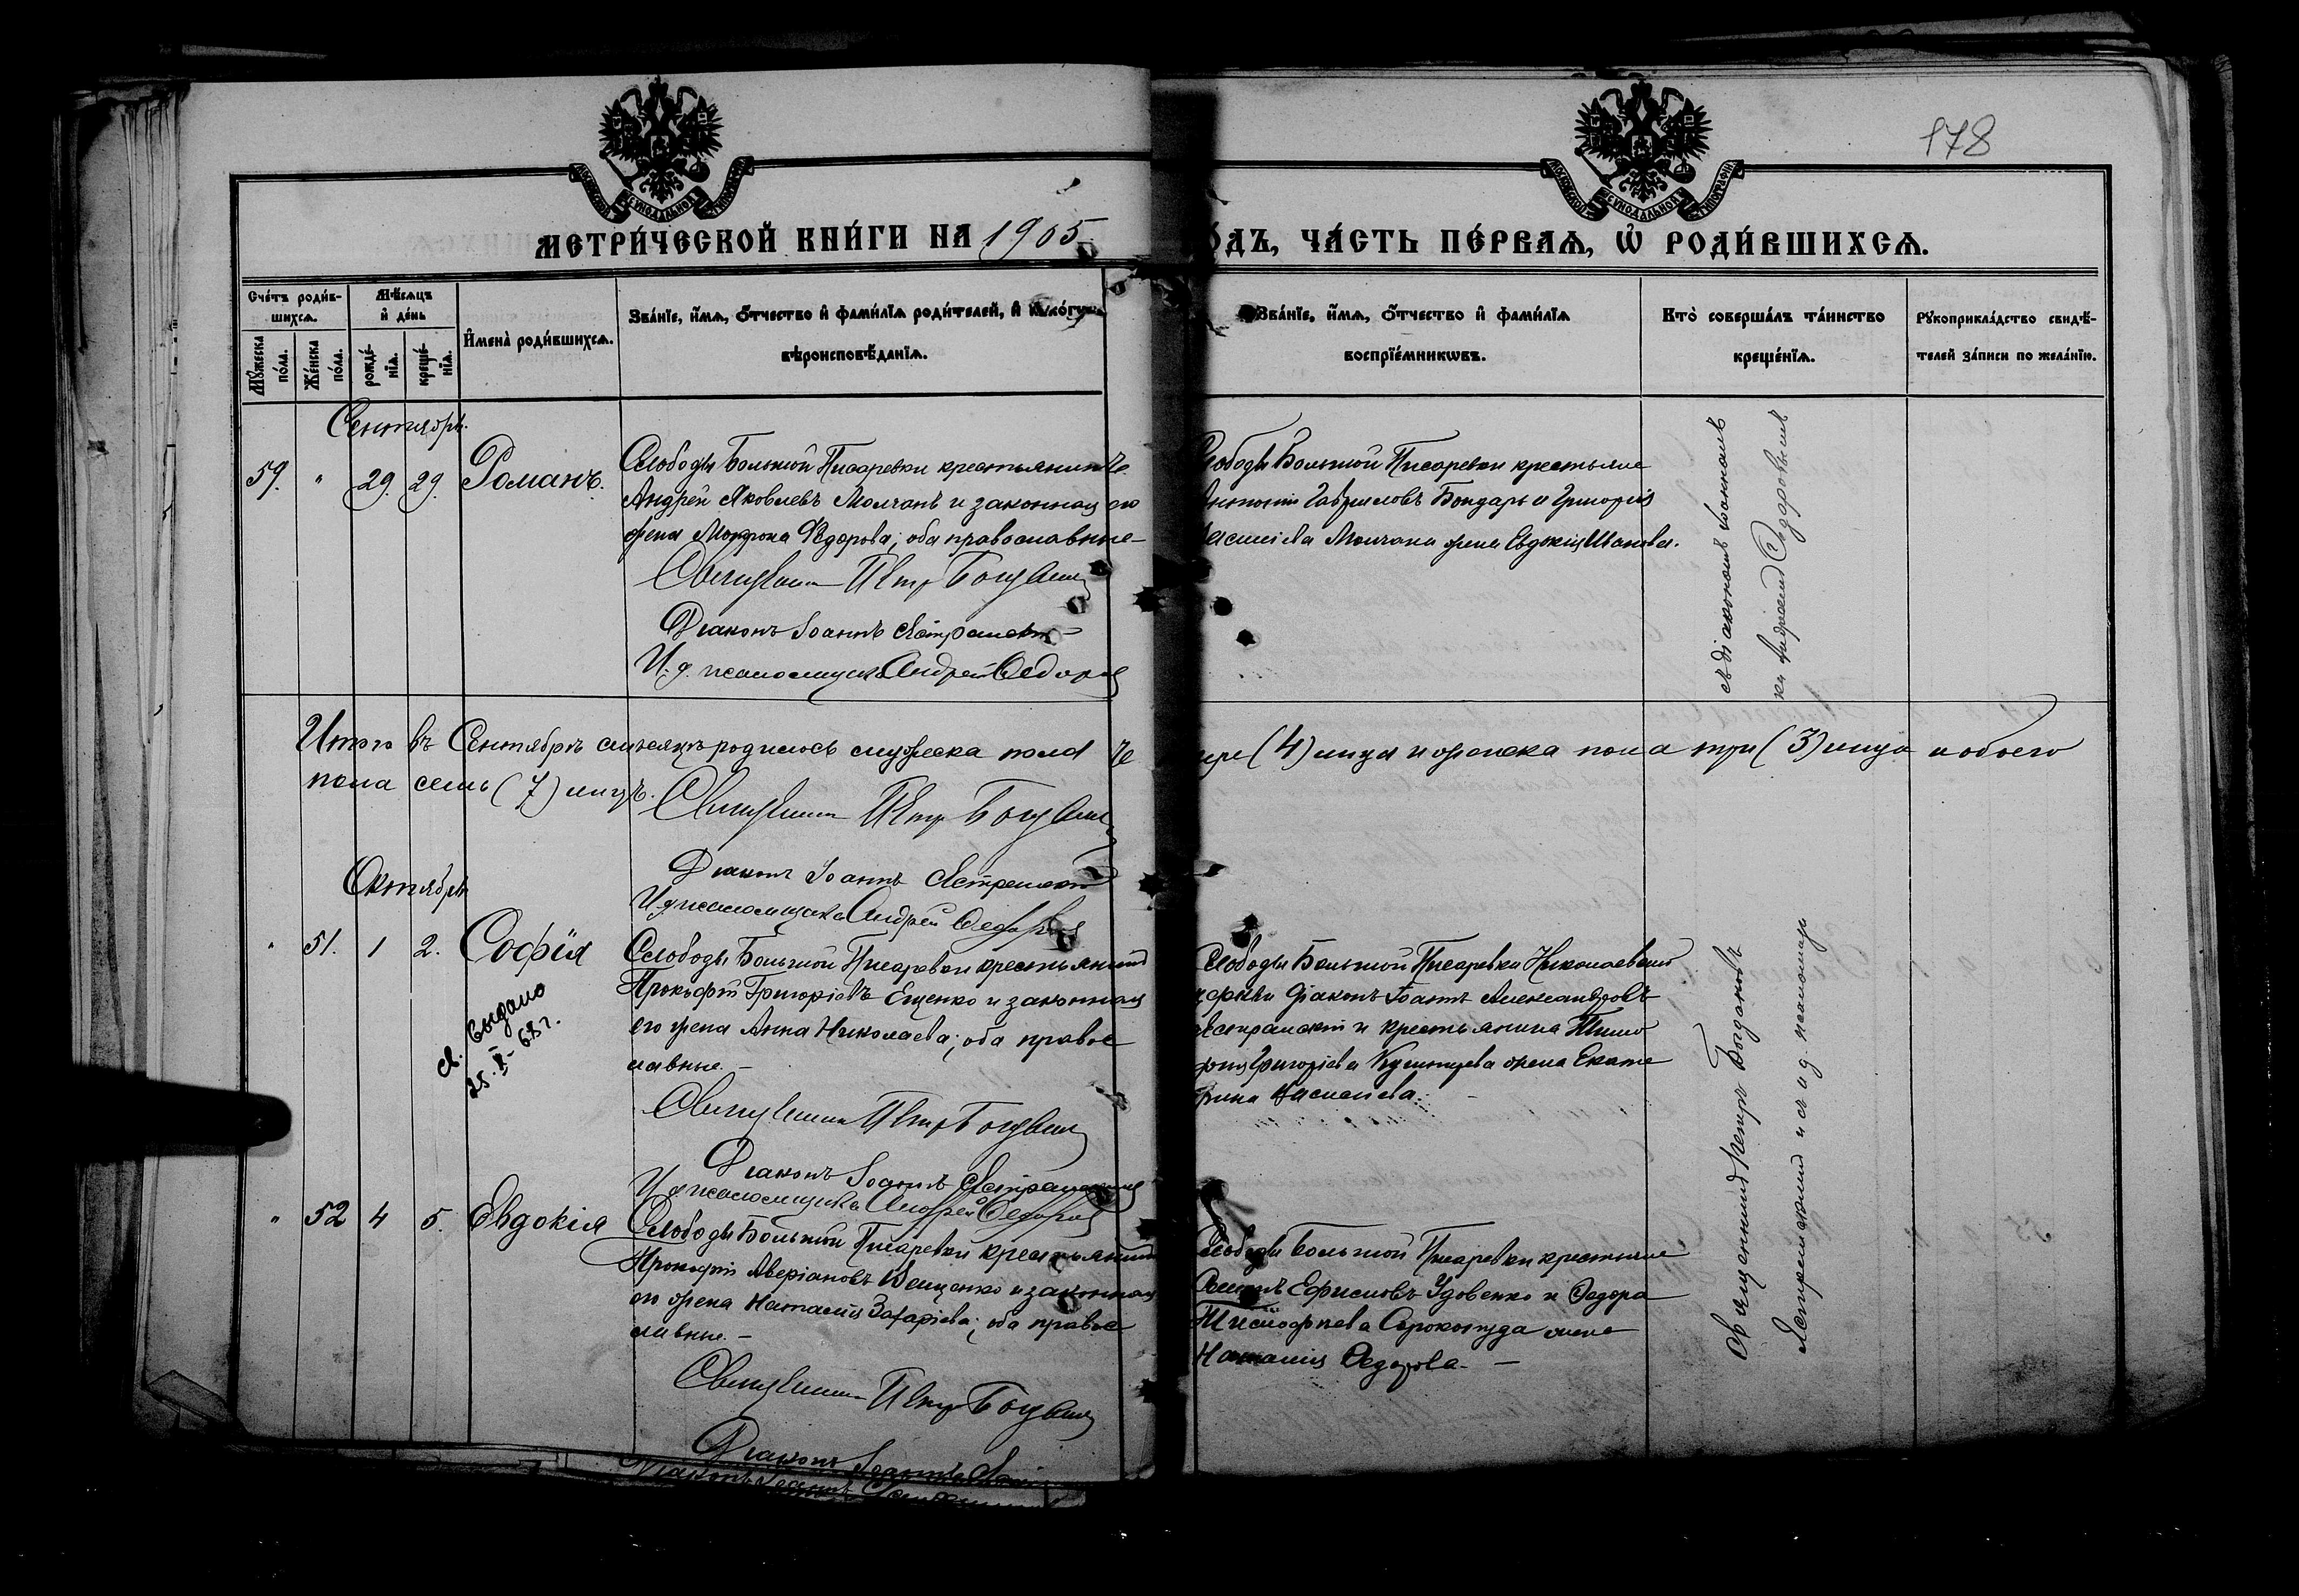 178
МЕТРИ́ЧЕСКОЙ КНИ́ГИ НА 1905
ОДЪ, ЧА́СТЬ ПЕ́РВАѦ, Ѡ҆ РОДИ́ВШИХСѦ.
Сче́тъ роди́в-
шихсѧ.
Мꙋ́жеска по́ла.
Же́нска по́ла.
Мѣ́сѧцъ и҆ де́нь
рожде́-нїѧ.
креще́-нїѧ.
И҆мена̀ роди́вшихсѧ.
Зва́нїе, и҆́мѧ, ѻ҆́тчество и҆ фами́лїѧ роди́телей, и҆
вѣроисповѣ́данїѧ.
Зва́нїе, и҆́мѧ, ѻ҆́тчество и҆ фами́лїѧ
воспрїе́мникѡвъ.
Кто̀ соверша́лъ та́инство
креще́нїѧ.
Рꙋкоприкла́дство свидѣ́-
телей за́писи по жела́нїю.
Сентябрь.
59. " 29. 29. Романъ.
Слободы Большой Писаревки крестьянинъ
Андрей Яковлевъ Молчанъ и законная его
жена Федорова; оба православные
Священник Петр Богданов
Діаконъ Іоаннъ Ястремскій
И. д. псаломщика Андрей Федоров
Слободы Большой Писаревки крестьяне
Гавриловъ Бондарь и Григорія
Молчана жена Евдокія
съ діакономъ Іоанномъ
Андреемъ Федоровымъ
Итого въ Сентябрѣ мѣсяцѣ родилось мужеска пола че
тыре (4) лица и женска пола три (3) лица и обоего
пола семь (7) лицъ.
Священник Петр Богданов
Діаконъ Іоаннъ Ястремскій
И. д. псаломщика Андрей Федоров
Октябрь
" 51. 1 2. Софія
св. выдано
25. X - 68 г.
Слободы Большой Писаревки крестьянинъ
Прокофій Григоріевъ Ященко и законная
его жена Анна Николаева; оба правос
лавные. —
Священник Петр Богданов
Діаконъ Іоаннъ Ястремскій
И. д. псаломщика Андрей Федоров
Слободы Большой Писаревки Николаевской
церкви діаконъ Іоаннъ Александровъ
Ястремскій и крестьянина
Григоріева жена Екате
рина
Священникъ Петръ Богдановъ
Ястремскимъ и съ и. д. псаломщи
" 52 4 5. Евдокія
Слободы Большой Писаревки крестьянинъ
Прокофій Аверіановъ и законная
его жена Наталія Захаріева; оба правос
лавные. —
Священник Петр Богданов
Діаконъ Іоаннъ
Слободы Большой Писаревки крестьяне
Ефимовъ Удовенко и Федора
жена
Наталія Федорова. —